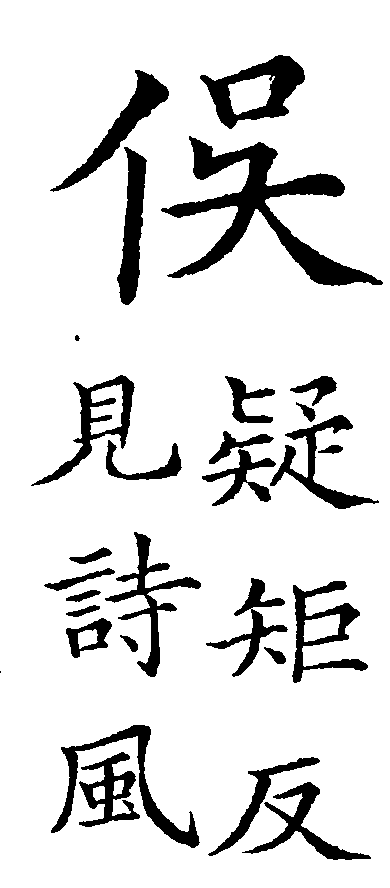 俁
疑矩反
見詩風